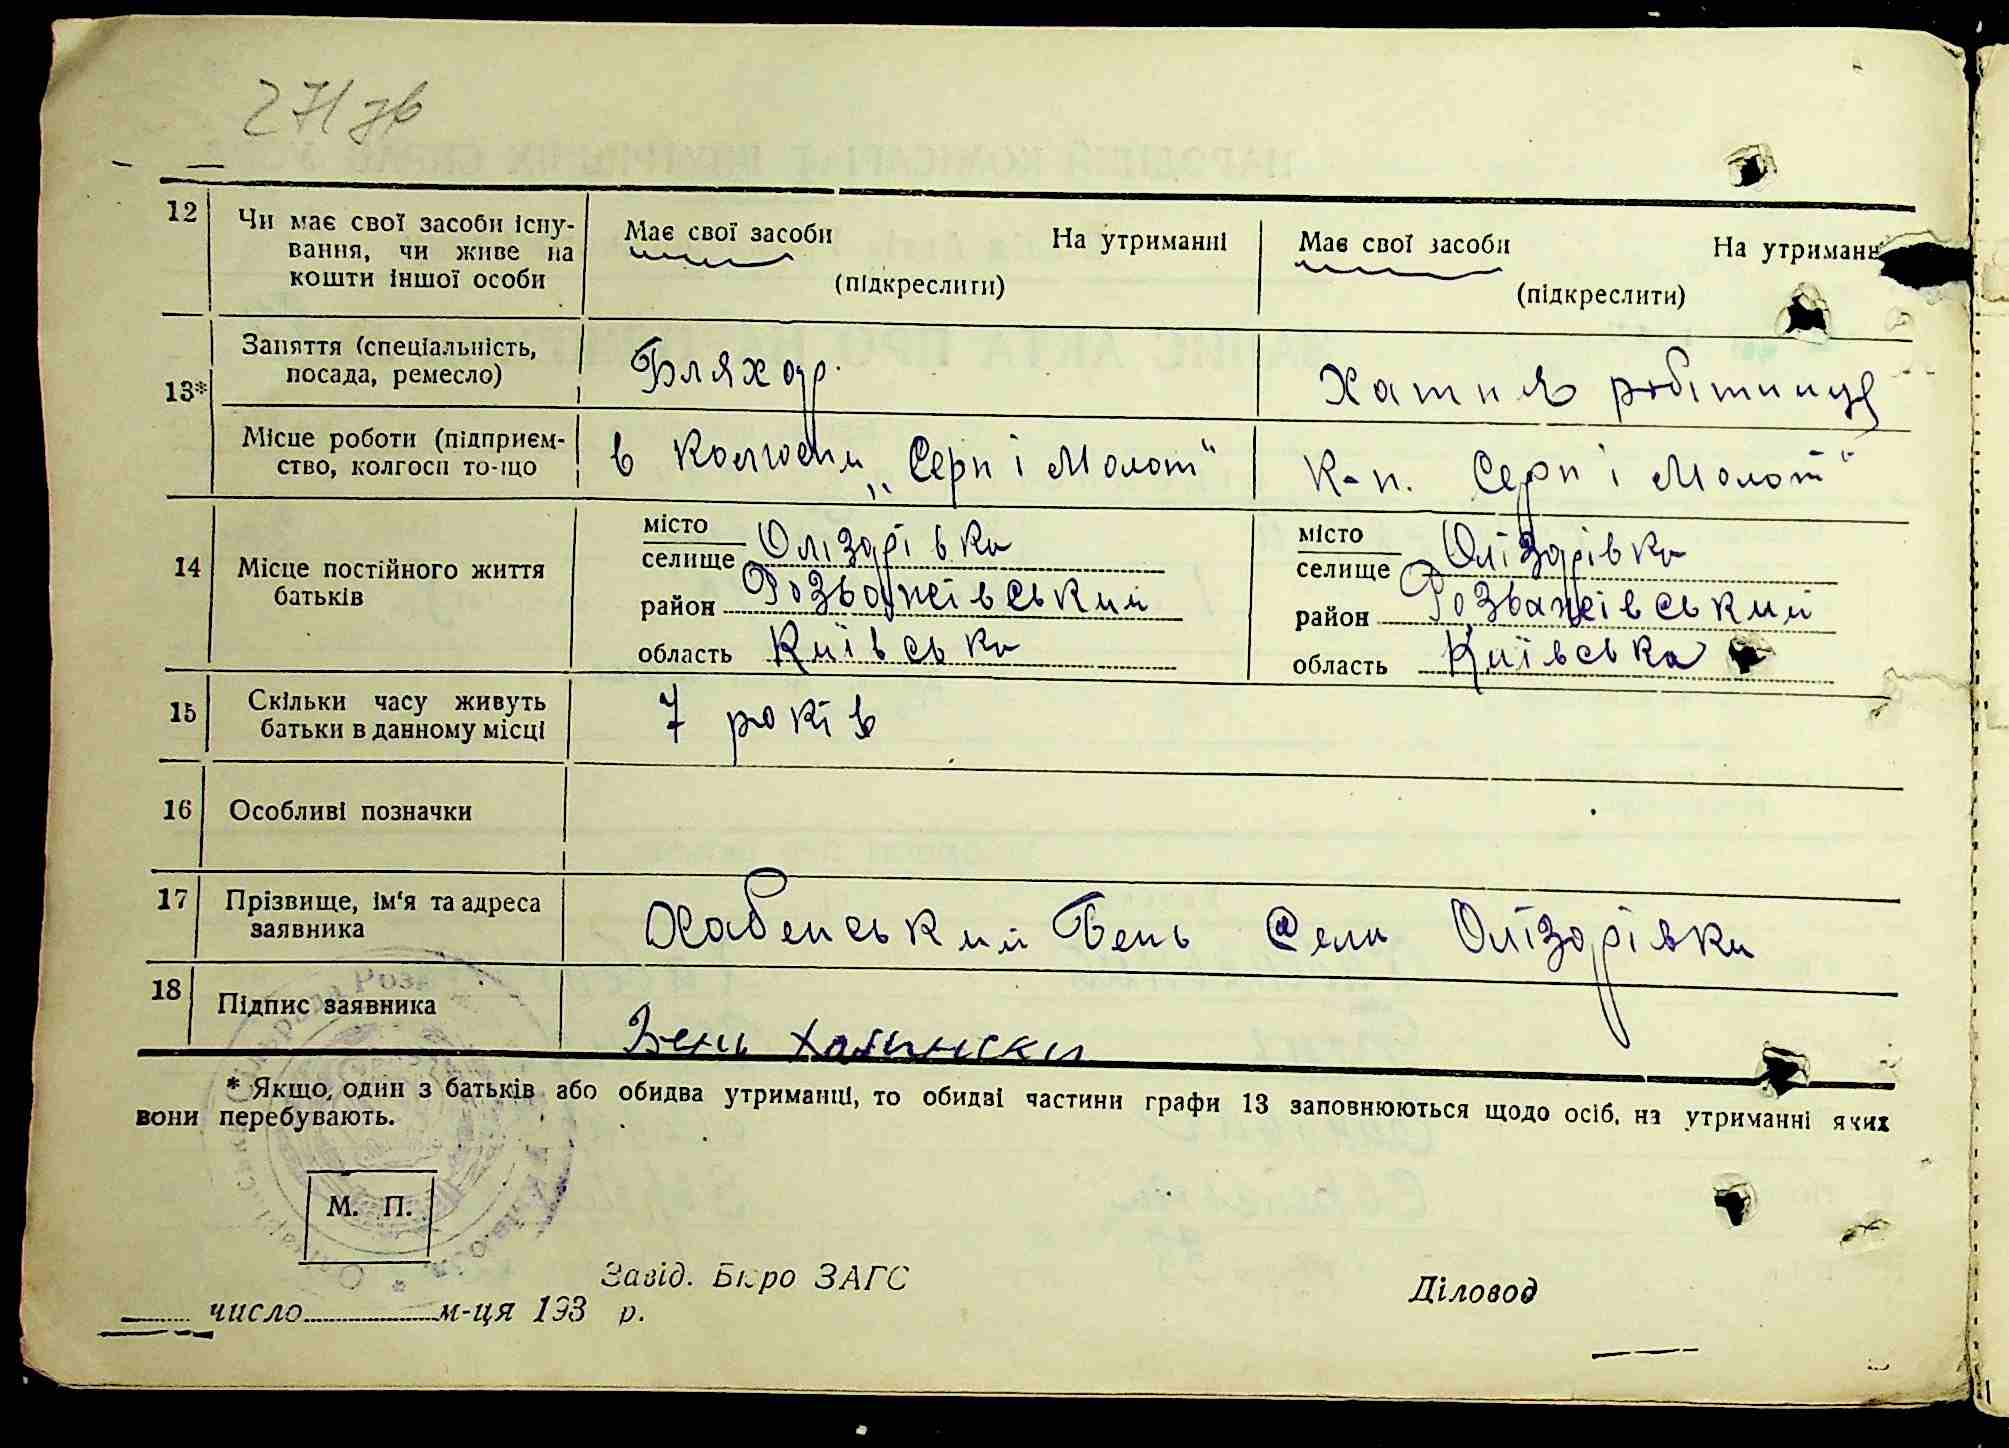 271 зв
12
Чи має свої засоби існу-
вання, чи живе на
кошти іншої особи
Має свої засоби На утриманні
(підкреслити)
Має свої засоби На утриманн
(підкреслити)
13*
Заняття (спеціальність,
посада, ремесло)
Бляхар
Хатня робітниця
Місце роботи (підприєм-
ство, колгосп то-що
в колгоспи „Серп і Молот"
К-п. Серп і Молот"
14
Місце постійного життя
батьків
місто
селище Олізарівка
район Розважівський
область Київська
місто
селище Олізарівка
район Розважівський
область Київська
15
Скільки часу живуть
батьки в данному місці
7 років
16
Особливі позначки
17
Прізвище, ім'я та адреса
заявника
Хабенський Бень Села Олізарівки
18
Підпис заявника
Бень
* Якщо один з батьків або обидва утриманці, то обидві частини графи 13 заповнюються щодо осіб, на утриманні яких
вони перебувають.
М. П.
Завід. Бюро ЗАГС
Діловод
число м-ця 193 р.